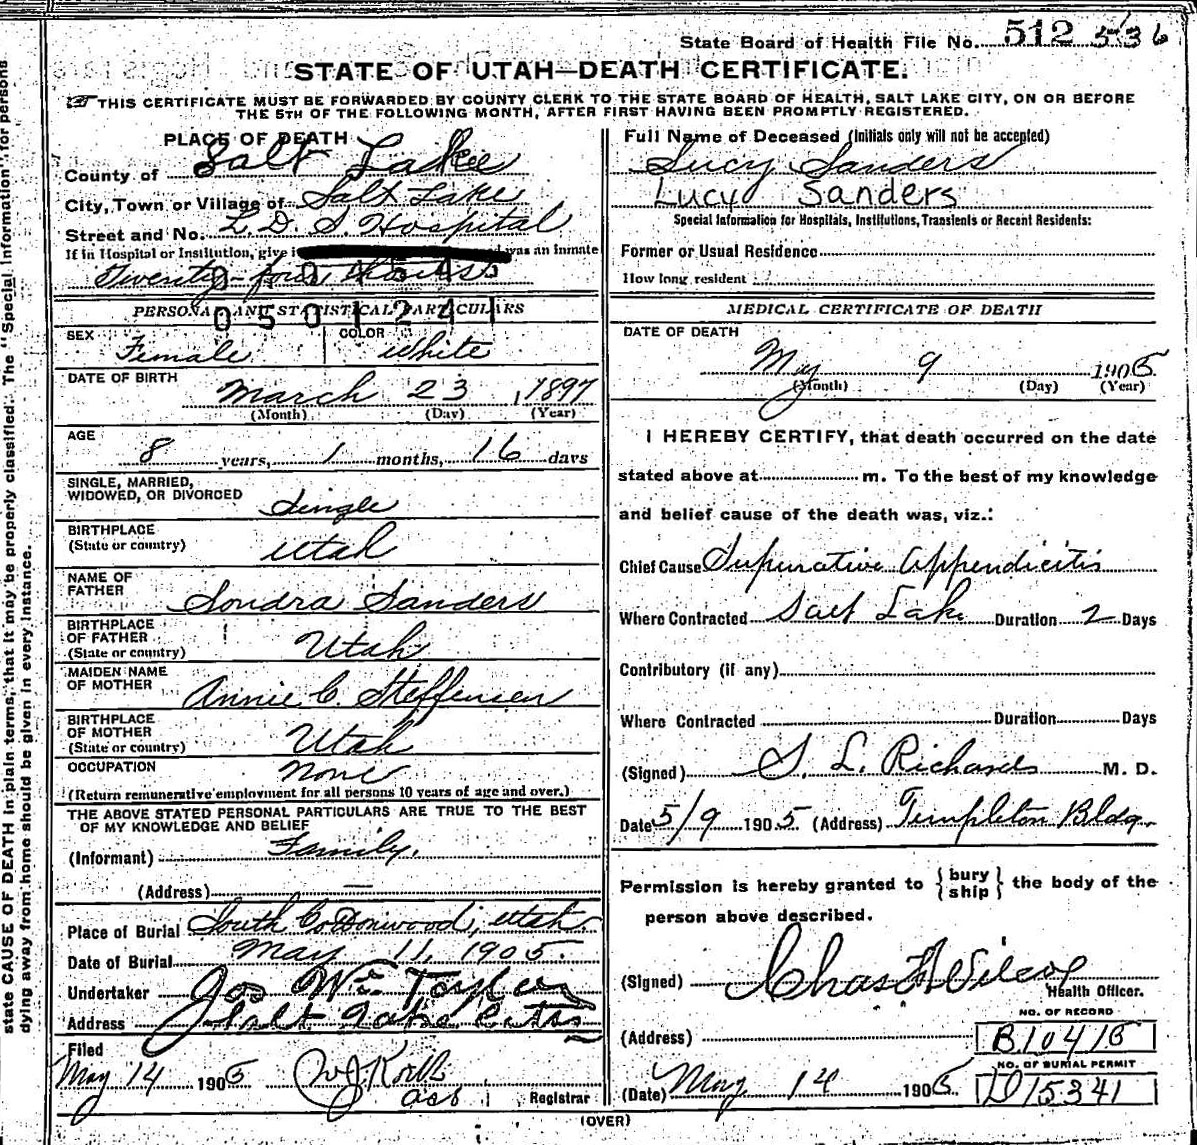 State Board of Health File No. 512 536
STATE OF UTAH—DEATH CERTIFICATE.
THIS CERTIFICATE MUST BE FORWARDED BY COUNTY CLERK TO THE STATE BOARD OF HEALTH, SALT LAKE CITY, ON OR BEFORE
THE 5TH OF THE FOLLOWING MONTH, AFTER FIRST HAVING BEEN PROMPTLY REGISTERED.
PLACE OF DEATH
County of Salt Lake
City, Town or Village of Salt Lake
Street and No. L. D. S. Hospital
If in Hospital or Institution, give was an inmate
Twenty-four hours
050124
PERSONAL AND STATISTICAL PARTICULARS
SEX Female COLOR White
DATE OF BIRTH March 23, 1897
(Month) (Day) (Year)
AGE
8 years, 1 months, 16 days
SINGLE, MARRIED,
WIDOWED, OR DIVORCED Single
BIRTHPLACE
(State or country) Utah
NAME OF
FATHER Sondra Sanders
BIRTHPLACE
OF FATHER
(State or country) Utah
MAIDEN NAME
OF MOTHER Annie C. Steffensen
BIRTHPLACE
OF MOTHER
(State or country) Utah
OCCUPATION None
(Return remunerative employment for all persons 10 years of age and over.)
THE ABOVE STATED PERSONAL PARTICULARS ARE TRUE TO THE BEST
OF MY KNOWLEDGE AND BELIEF
(Informant) Family.
(Address) —
Place of Burial South Cottonwood, Utah.
Date of Burial May 11, 1905.
Undertaker Jos Wm Taylor
Address Salt Lake City
Filed
May 14 1905
Registrar
Full Name of Deceased (Initials only will not be accepted)
Lucy Sanders
Lucy Sanders
Special Information for Hospitals, Institutions, Transients or Recent Residents:
Former or Usual Residence
How long resident
MEDICAL CERTIFICATE OF DEATH
DATE OF DEATH
May 9 1905
(Month) (Day) (Year)
I HEREBY CERTIFY, that death occurred on the date
stated above at m. To the best of my knowledge
and belief cause of the death was, viz.:
Chief Cause Supurative Appendicitis
Where Contracted Salt Lake Duration 2 Days
Contributory (if any)
Where Contracted Duration Days
(Signed) S. L. Richards M. D.
Date 5/9 1905 (Address) Templeton Bldg.
Permission is hereby granted to {bury ship} the body of the
person above described.
(Signed) Chas Wilcox
Health Officer.
NO. OF RECORD
(Address) B10415
NO. OF BURIAL PERMIT
(Date) May 14 1905 D15341
(OVER)
state CAUSE OF DEATH in plain terms, that it may be properly classified. The "Special Information" for persons
dying away from home should be given in every instance.